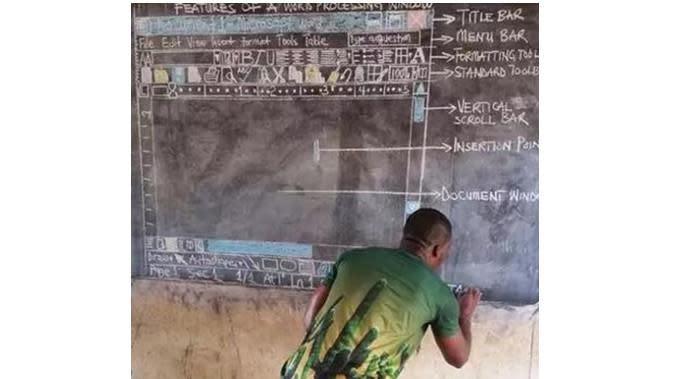 FEATURES OF A WORD PROCESSING WINDOW
TITLE BAR
File Edit View Insert format Tools Table Type a question
MENU BAR
A B I U A
FORMATTING TOOL
100%
STANDARD TOOLB
2 3 4 5
VERTICAL
SCROLL BAR
INSERTION POIN
DOCUMENT WINDO
Draw AutoShapes
Page 1 Sec 1 1/1 At 1"
STA